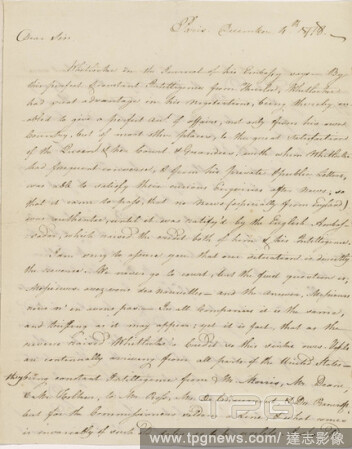 Paris December 4th 1778.
Dear Sir
Whitlocke in the Journal of his Embassy says By
Correspondence & constant Intelligence from Thurloe, Whitlocke
had great advantage in his Negotiations, being thereby en-
abled to give a perfect acct. of affairs, not only of his own
Country, but of most other places, to the great satisfaction
of the Queen & her Court & Grandees, with whom Whitlocke
had frequent converse, & from his private & public Letters,
was able to satisfy their curious Enquiries after news, so
that it came to pass, that no News (especially from England)
was authentic, until it was notify'd by the English Ambas-
sador, which raised the credit both of him & his Intelligence.
I am sorry to assure you that our situation is directly
the reverse. We never go to court but the first question is,
Monsieur avez vous des nouvelles and the answer, Monsieur
non
In all Companies it is the same,
and trifling as it may appear, yet it is fact, that as the
raised Whitlocke's Credit so this sinks ours. Ships
are continually arriving from all parts of the United States
bringing constant Intelligence from Mr. Morris, Mr. Deane,
to Mr. Ross, Mr.
but for the Commissioners seldom a Line, & what comes
is
www.tpgnews.com / 達志影像